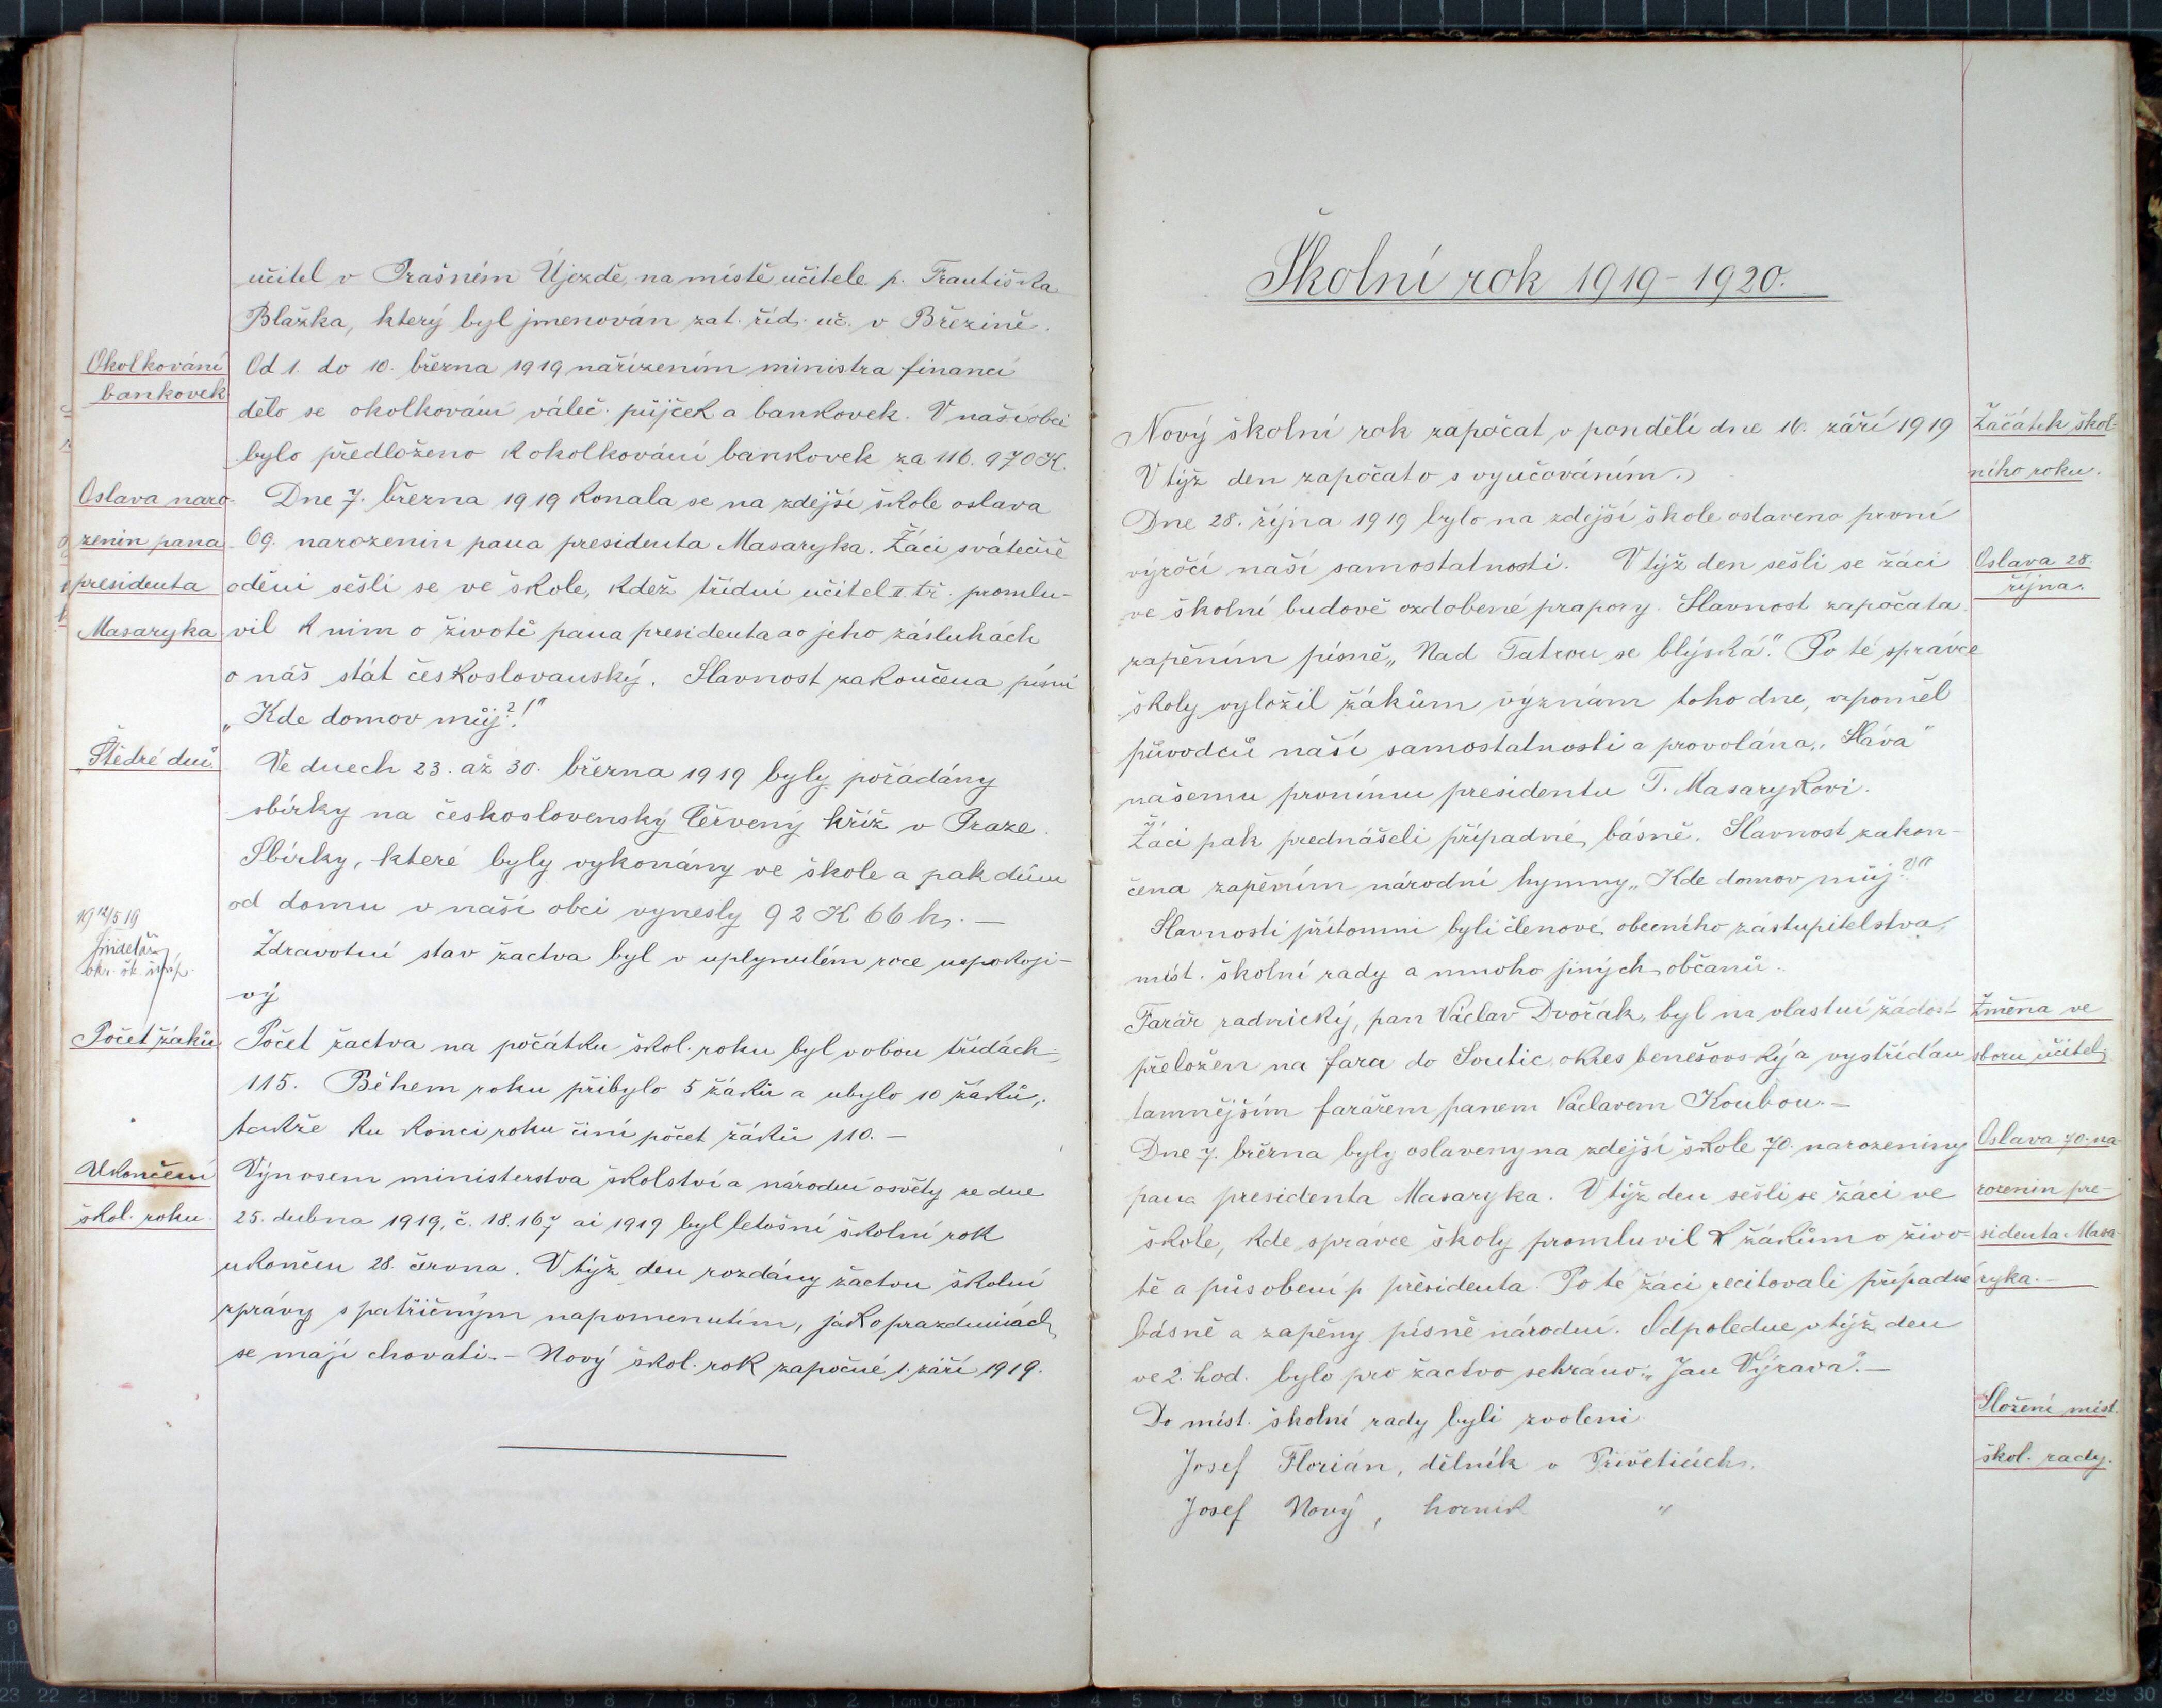 učitel v Prašném Újezdě, na místě učitele p. Františka
Blažka, který byl jmenován zat. říd. uč. v Březině.
Okolkování
bankovek
Od 1. do 10. března 1919 nařízením ministra financí
dělo se okolkování váleč. půjček a bankovek. V naší obci
bylo předloženo k okolkování bankovek za 116.970 K.
Oslava naro-
zenin pana
presidenta
Masaryka
Dne 7. března 1919 konala se na zdejší škole oslava
69. narozenin pana presidenta Masaryka. Žáci svátečně
oděni sešli se ve škole, kdež třídní učitel II. tř. promlu-
vil k nim o životě pana presidenta a o jeho zásluhách
o náš stát československý. Slavnost zakončena písní
„Kde domov můj?!"
Štědré dni.
Ve dnech 23. až 30. března 1919 byly pořádány
sbírky na československý Červený kříž v Praze.
Sbírky, které byly vykonány ve škole a pak dům
od domu v naší obci vynesly 92 K 66 h. —
19 12/5 19
okr. šk. insp.
Zdravotní stav žactva byl v uplynulém roce uspokoji-
vý
Počet žáků
Počet žactva na počátku škol. roku byl v obou třídách
115. Během roku přibylo 5 žáků a ubylo 10 žáků,
takže ku konci roku činí počet žáků 110. —
Ukončení
škol. roku.
Výnosem ministerstva školství a národní osvěty ze dne
25. dubna 1919, č. 18.167 ai 1919 byl letošní školní rok
ukončen 28. června. V týž den rozdány žactvu školní
zprávy s patřičným napomenutím, jak o prazdninách
se mají chovati. — Nový škol. rok započne 1. září 1919.
Školní rok 1919–1920.
Nový školní rok započat v pondělí dne 16. září 1919
V týž den započato s vyučováním.
Začátek škol-
ního roku.
Dne 28. října 1919 bylo na zdejší škole oslaveno první
výročí naší samostatnosti. V týž den sešli se žáci
Oslava 28.
října.
ve školní budově ozdobené prapory. Slavnost započata
zapěním písně „Nad Tatrou se blýská." Po té správce
školy vyložil žákům význám toho dne, vzpoměl
původců naší samostatnosti a provolána „Sláva"
našemu prvnímu presidentu T. Masarykovi.
Žáci pak prednášeli případné básně. Slavnost zakon-
čena zapěním národní hymny „Kde domov můj?!"
Slavnosti přítomni byli členové obecního zástupitelstva,
míst. školní rady a mnoho jiných občanů.
Farář radnický, pan Václav Dvořák, byl na vlastní žádost
přeložen na faru do Soutic, okres benešovský a vystřídán
tamnějším farářem panem Václavem Koubou. —
Změna ve
sboru učitel.
Dne 7. března byly oslaveny na zdejší škole 70. narozeniny
pana presidenta Masaryka. V týž den sešli se žáci ve
škole, kde správce školy promluvil k žákům o živo-
tě a působení p. presidenta. Po té žáci recitovali případné
básně a zapěny písně národní. Odpoledne v týž den
ve 2. hod. bylo pro žactvo sehráno: „Jan Výrava". —
Oslava 70. na-
rozenin pre-
sidenta Masa-
ryka. —
Do míst. školní rady byli zvoleni
Složení míst.
škol. rady.
Josef Florián, dělník v Přívěticích.
Josef Nový, horník "